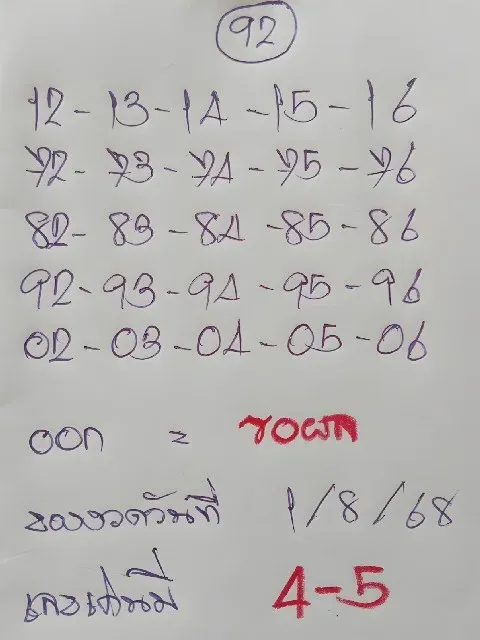 92
12-13-14-15-16
72-73-74-75-76
82-83-84-85-86
92-93-94-95-96
02-03-04-05-06
ออก = รอผล
ของงวดวันที่ 1/8/68
เลขเด่นมี 4-5